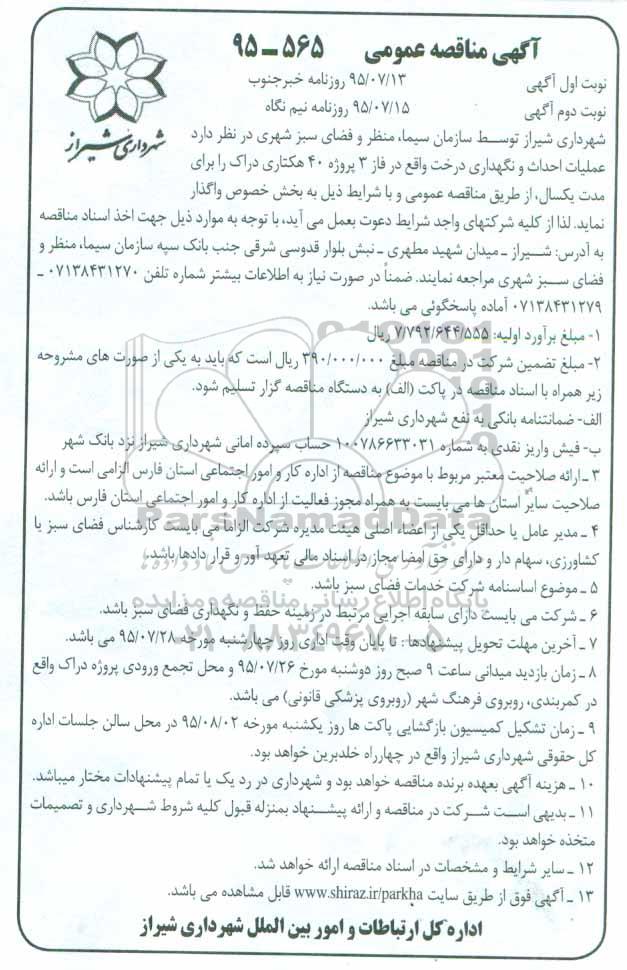 آگهی مناقصه عمومی ۵۶۵ ـ ۹۵
نوبت اول آگهی ۹۵/۰۷/۱۳ روزنامه خبرجنوب
نوبت دوم آگهی ۹۵/۰۷/۱۵ روزنامه نیم نگاه
شهرداری شیراز
شهرداری شیراز توسط سازمان سیما، منظر و فضای سبز شهری در نظر دارد
عملیات احداث و نگهداری درخت واقع در فاز ۳ پروژه ۴۰ هکتاری دراک را برای
مدت یکسال، از طریق مناقصه عمومی و با شرایط ذیل به بخش خصوص واگذار
نماید. لذا از کلیه شرکتهای واجد شرایط دعوت بعمل می آید، با توجه به موارد ذیل جهت اخذ اسناد مناقصه
به آدرس: شیراز ـ میدان شهید مطهری ـ نبش بلوار قدوسی شرقی جنب بانک سپه سازمان سیما، منظر و
فضای سبز شهری مراجعه نمایند. ضمناً در صورت نیاز به اطلاعات بیشتر شماره تلفن ۰۷۱۳۸۴۳۱۲۷۰ ـ
۰۷۱۳۸۴۳۱۲۷۹ آماده پاسخگوئی می باشد.
۱- مبلغ برآورد اولیه: ۷/۷۹۲/۶۴۴/۵۵۵ ریال
۲- مبلغ تضمین شرکت در مناقصه مبلغ ۳۹۰/۰۰۰/۰۰۰ ریال است که باید به یکی از صورت های مشروحه
زیر همراه با اسناد مناقصه در پاکت (الف) به دستگاه مناقصه گزار تسلیم شود.
الف- ضمانتنامه بانکی به نفع شهرداری شیراز
ب- فیش واریز نقدی به شماره ۱۰۰۷۸۶۶۳۳۰۳۱ حساب سپرده امانی شهرداری شیراز نزد بانک شهر
۳ ـ ارائه صلاحیت معتبر مربوط با موضوع مناقصه از اداره کار و امور اجتماعی استان فارس الزامی است و ارائه
صلاحیت سایر استان ها می بایست به همراه مجوز فعالیت از اداره کار و امور اجتماعی استان فارس باشد.
۴ ـ مدیر عامل یا حداقل یکی از اعضاء اصلی هیئت مدیره شرکت الزاما می بایست کارشناس فضای سبز یا
کشاورزی، سهام دار و دارای حق امضا مجاز در اسناد مالی تعهد آور و قرار دادها باشد.
۵ ـ موضوع اساسنامه شرکت خدمات فضای سبز باشد.
۶ ـ شرکت می بایست دارای سابقه اجرایی مرتبط در زمینه حفظ و نگهداری فضای سبز باشد.
۷ ـ آخرین مهلت تحویل پیشنهادها : تا پایان وقت اداری روز چهارشنبه مورخه ۹۵/۰۷/۲۸ می باشد.
۸ ـ زمان بازدید میدانی ساعت ۹ صبح روز دوشنبه مورخ ۹۵/۰۷/۲۶ و محل تجمع ورودی پروژه دراک واقع
در کمربندی، روبروی فرهنگ شهر (روبروی پزشکی قانونی) می باشد.
۹ ـ زمان تشکیل کمیسیون بازگشایی پاکت ها روز یکشنبه مورخه ۹۵/۰۸/۰۲ در محل سالن جلسات اداره
کل حقوقی شهرداری شیراز واقع در چهارراه خلدبرین خواهد بود.
۱۰ ـ هزینه آگهی بعهده برنده مناقصه خواهد بود و شهرداری در رد یک یا تمام پیشنهادات مختار میباشد.
۱۱ ـ بدیهی است شرکت در مناقصه و ارائه پیشنهاد بمنزله قبول کلیه شروط شهرداری و تصمیمات
متخذه خواهد بود.
۱۲ ـ سایر شرایط و مشخصات در اسناد مناقصه ارائه خواهد شد.
۱۳ ـ آگهی فوق از طریق سایت www.shiraz.ir/parkha قابل مشاهده می باشد.
اداره کل ارتباطات و امور بین الملل شهرداری شیراز
ParsNamadData
پایگاه اطلاع رسانی مناقصه و مزایده